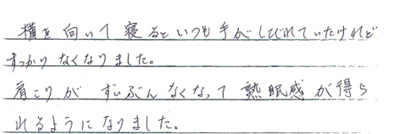 横を向いて寝るといつも手がしびれていたけれど
すっかりなくなりました。
肩こりがずいぶんなくなって熟眠感が得ら
れるようになりました。